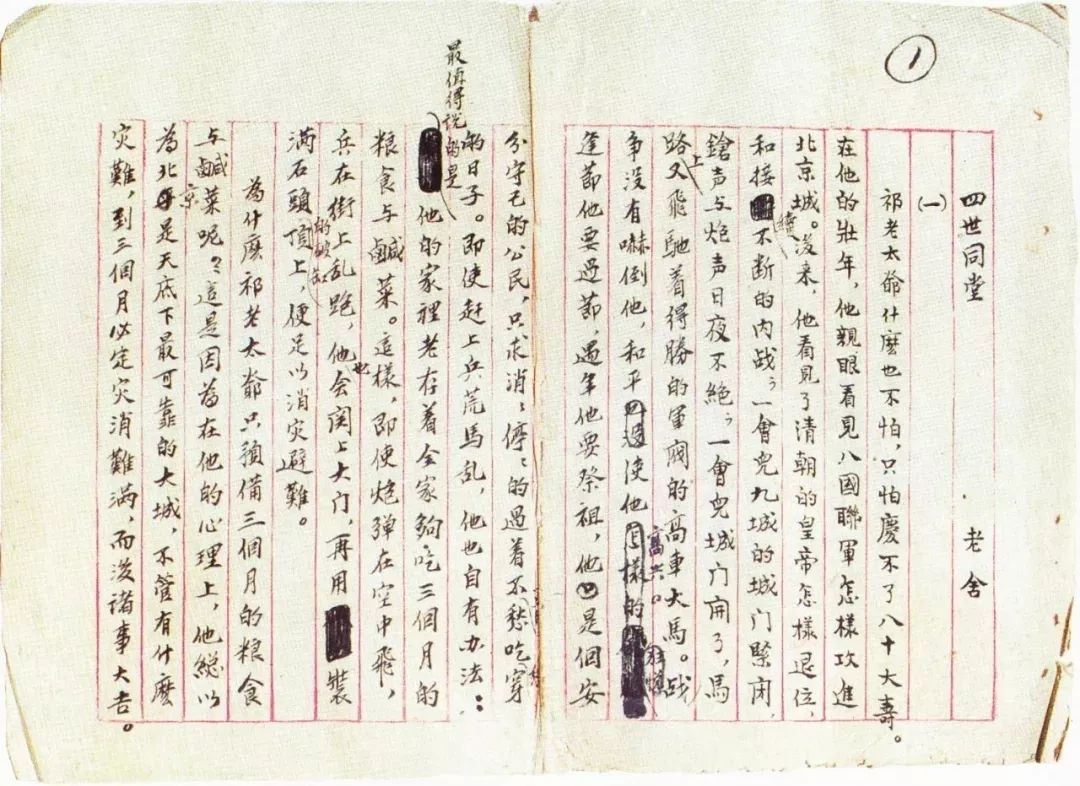 ①
四世同堂 老舍
(一)
祁老太爺什麽也不怕,只怕慶不了八十大壽。
在他的壯年,他親眼看見八國聯軍怎樣攻進
北京城。後来,他看見了清朝的皇帝怎樣退位,
和接續不断的内战;一會兒九城的城门緊闭,
鎗声与炮声日夜不絶;一會兒城门開了,馬
路上又飛馳着得勝的軍閥的高車大馬。战
争没有嚇倒他,和平使他高兴。
逢節他要过節,遇年他要祭祖,他是個安
分守己的公民,只求消〻停〻的過着不愁吃穿
的日子。即使赶上兵荒馬乱,他也自有办法:
最值得说的是他的家裡老存着全家夠吃三個月的
粮食与鹹菜。這樣,即使炮弹在空中飛,
兵在街上乱跑,他也会関上大门,再用装
满石頭的破缸顶上,便足以消灾避難。
為什麽祁老太爺只預備三個月的粮食
与鹹菜呢?這是因為在他的心理上,他總以
為北京是天底下最可靠的大城,不管有什麽
灾難,到三個月必定灾消難满,而後諸事大吉。